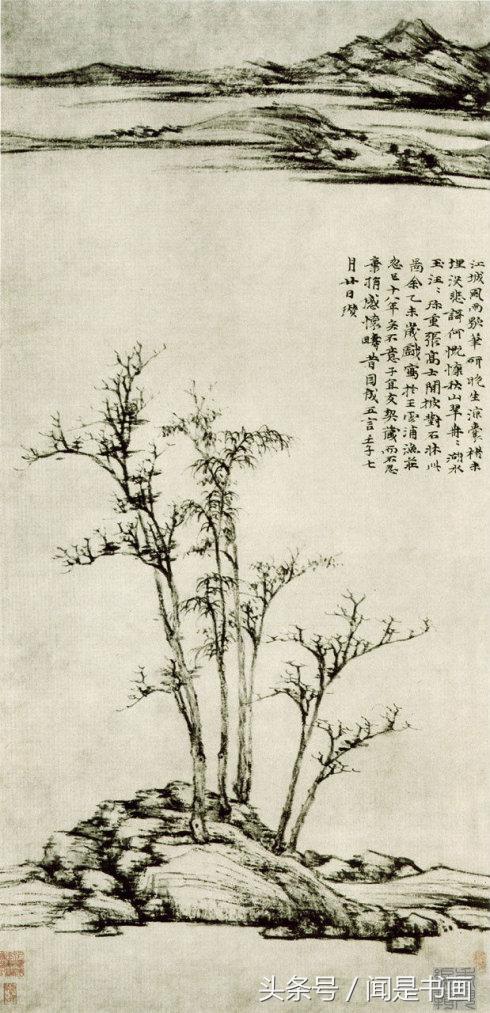 江城風雨歇筆研晚生涼囊楮未
埋沒悲謌何慨慷秋山翠冉〻湖水
玉汪〻珍重張高士閒披對石牀此
啚余乙未歲戲寫於王雲浦漁莊
忽已十八年矣不意子宜友契藏而不忍
棄捐感懷疇昔因成五言壬子七
月廿日瓚
头条号 / 闻是书画